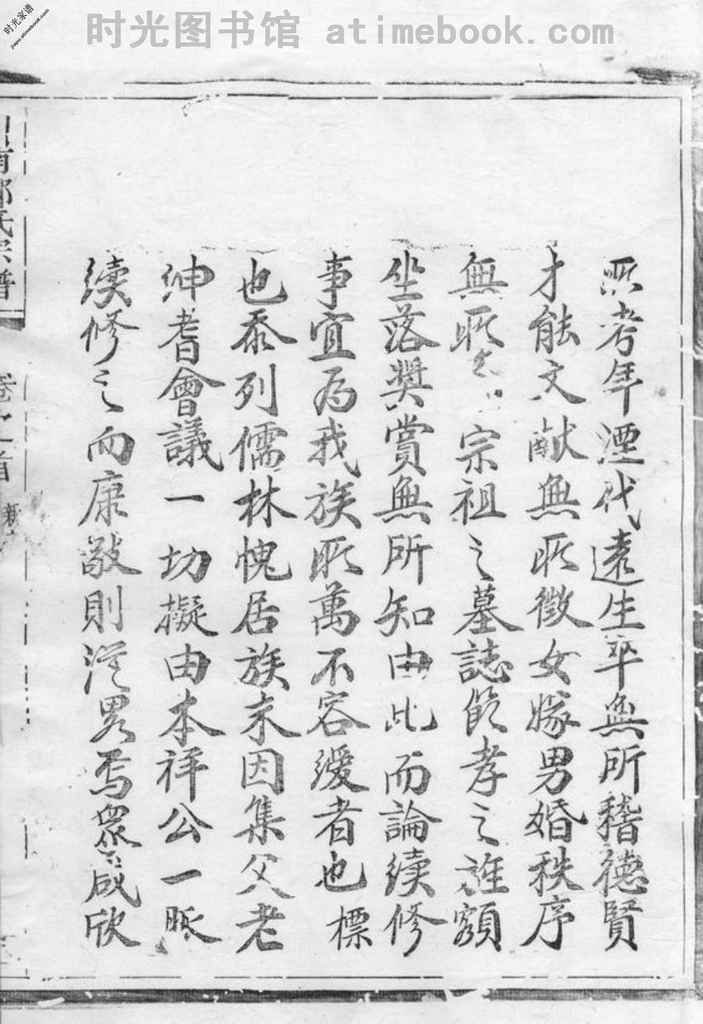 时光图书馆 atimebook.com
时光家谱
所考年湮代遠生卒無所稽德賢
才能文献無所徵女嫁男婚秩序
無所 宗祖之墓誌節孝之旌額
坐落獎賞無所知由此而論續修
事宜為我族所萬不容緩者也標
也忝列儒林愧居族末因集父老
紳耆會議一切擬由本祥公一脈
續修之而康敬則從畧焉衆咸欣
南 氏宗譜
卷之首